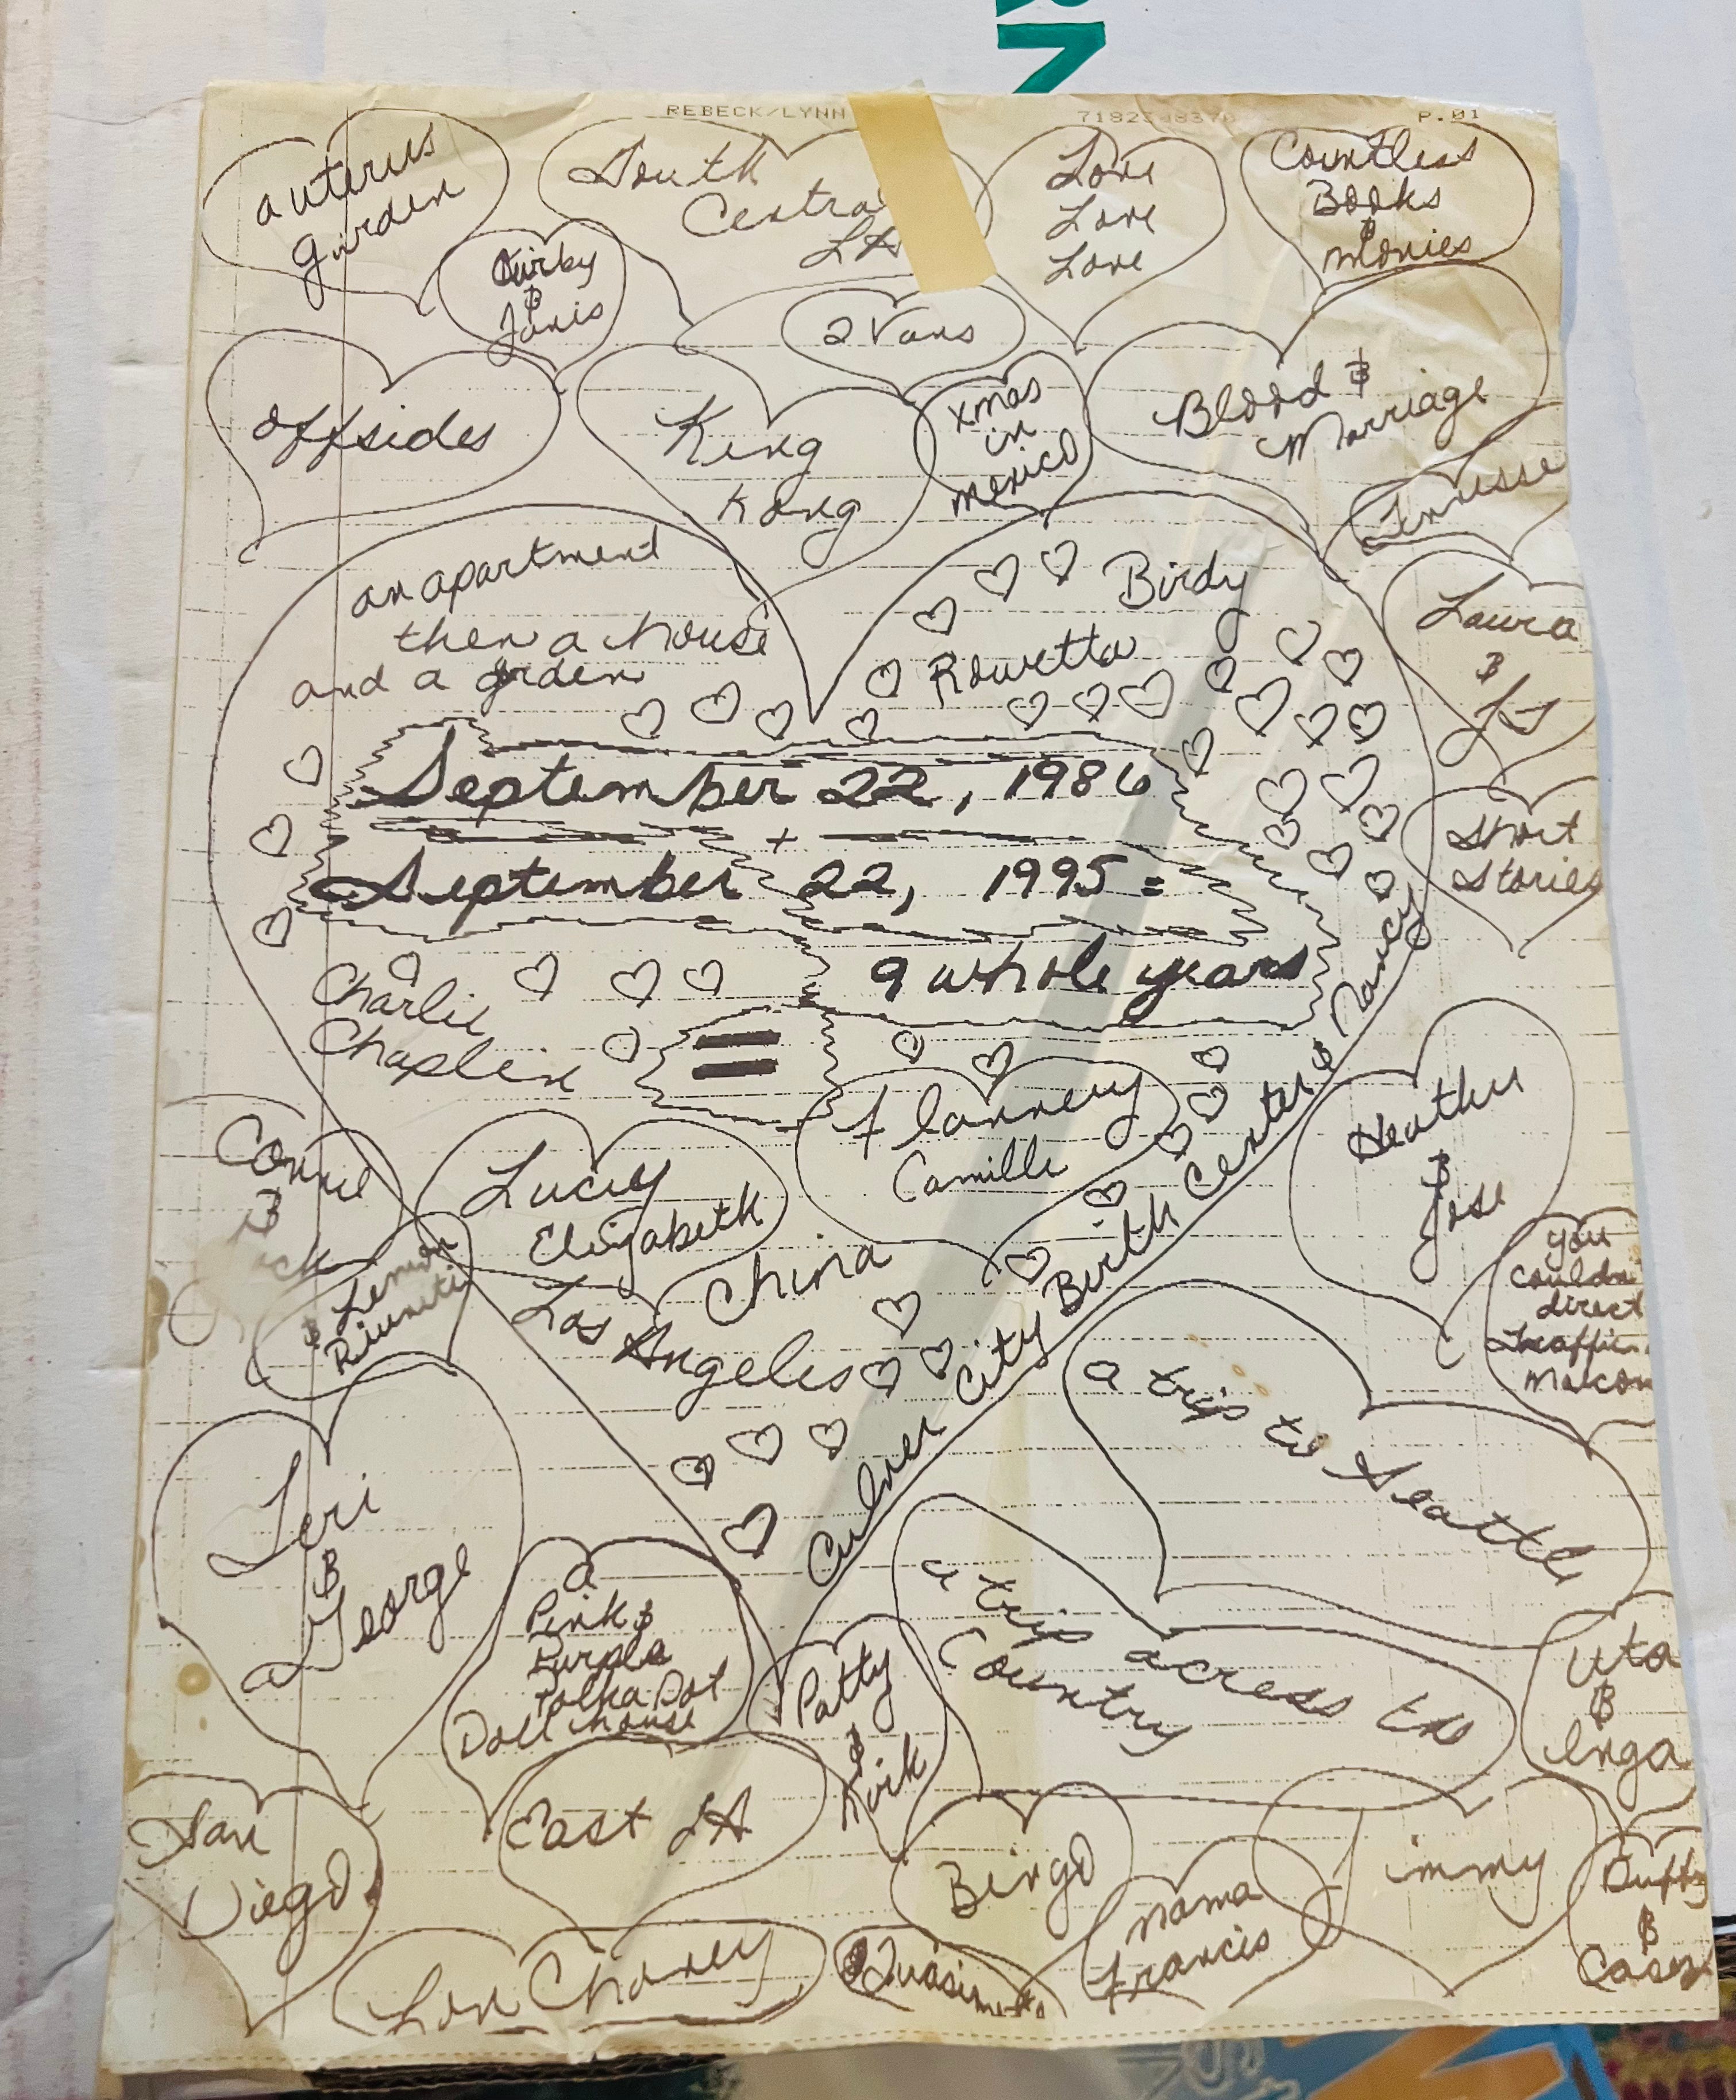 REBECK/LYNN
P.01
a uterus
garden
South
Central
LA
Love
Love
Love
Countless
Books
&
Movies
Kirby
&
Janis
2 Vans
offsides
King
Kong
xmas
in
mexico
Blood &
Marriage
an apartment
then a house
and a grden
Birdy
Rowetta
Laura
&
JJ
September 22, 1986
+
September 22, 1995 =
9 whole years
=
Short
Stories
Charlie
Chaplin
Flannery
Camille
Culver City Birth Center & Nancy
Connie
&
Lucy
Elizabeth
China
Los
Angeles
Heather
&
Jose
&
you
couldn
direct
traffic
Teri
&
George
a trip to Seattle
a
Pink &
Purple
Polka Dot
Doll house
Patty
&
Kirk
a trip across the
Country
Uta
&
Inga
San
Diego
East LA
Bingo
Mama
Francis
Jimmy
&
Casey
Lon Chaney